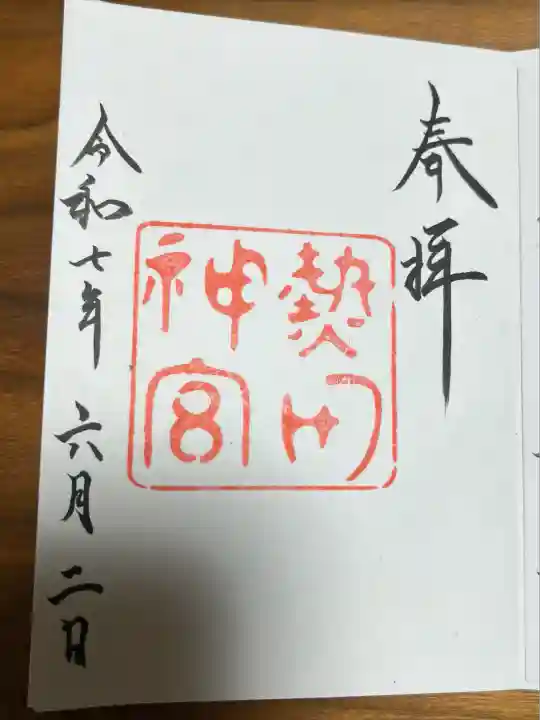 奉拝
熱田
神宮
令和七年 六月 二日